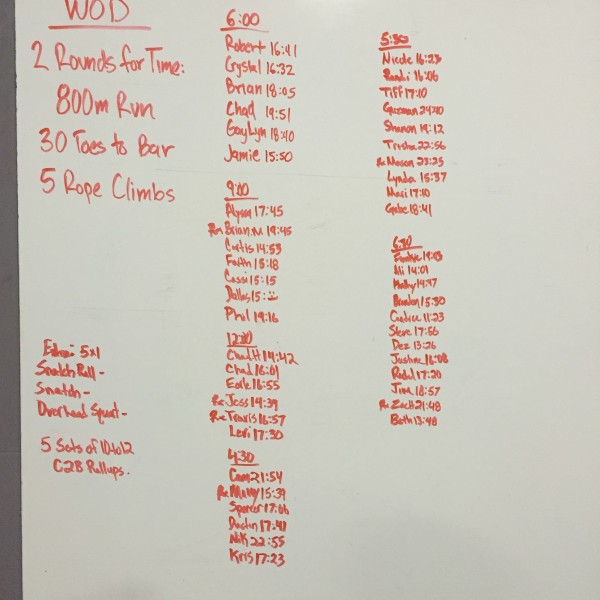 WOD
2 Rounds for Time:
800m Run
30 Toes to Bar
5 Rope Climbs
5x1
Snatch Pull -
Snatch -
Overhead Squat -
5 Sets of 10 to 12
C2B Pullups.
6:00
Robert 16:41
Crystal 16:32
Brian 18:05
Chad 19:51
GayLyn 18:40
Jamie 15:50
9:00
Alyson 17:45
Rx Brian M 19:45
Curtis 14:53
Faith 15:18
Cassi 15:15
Dallas 15:
Phil 19:16
12:00
Chad H 14:42
Chad 16:01
Earle 16:55
Rx Jess 14:39
Rx Travis 16:57
Levi 17:30
4:30
Cam 21:54
Rx Matty 15:39
Spencer 17:06
Dustin 17:41
Nik 22:55
Kris 17:23
5:30
Nicole 16:23
16:06
Tiff 17:10
Shanon 19:12
Trisha 22:56
Rx Mason 23:25
Lynda 15:37
Mari 17:10
Gabe 18:41
Ali 14:01
14:47
Brandon 15:50
Candice 11:23
Steve 17:56
Dez 13:26
Justine 16:08
17:20
Jim 18:57
Rx Zach 21:48
Beth 13:48